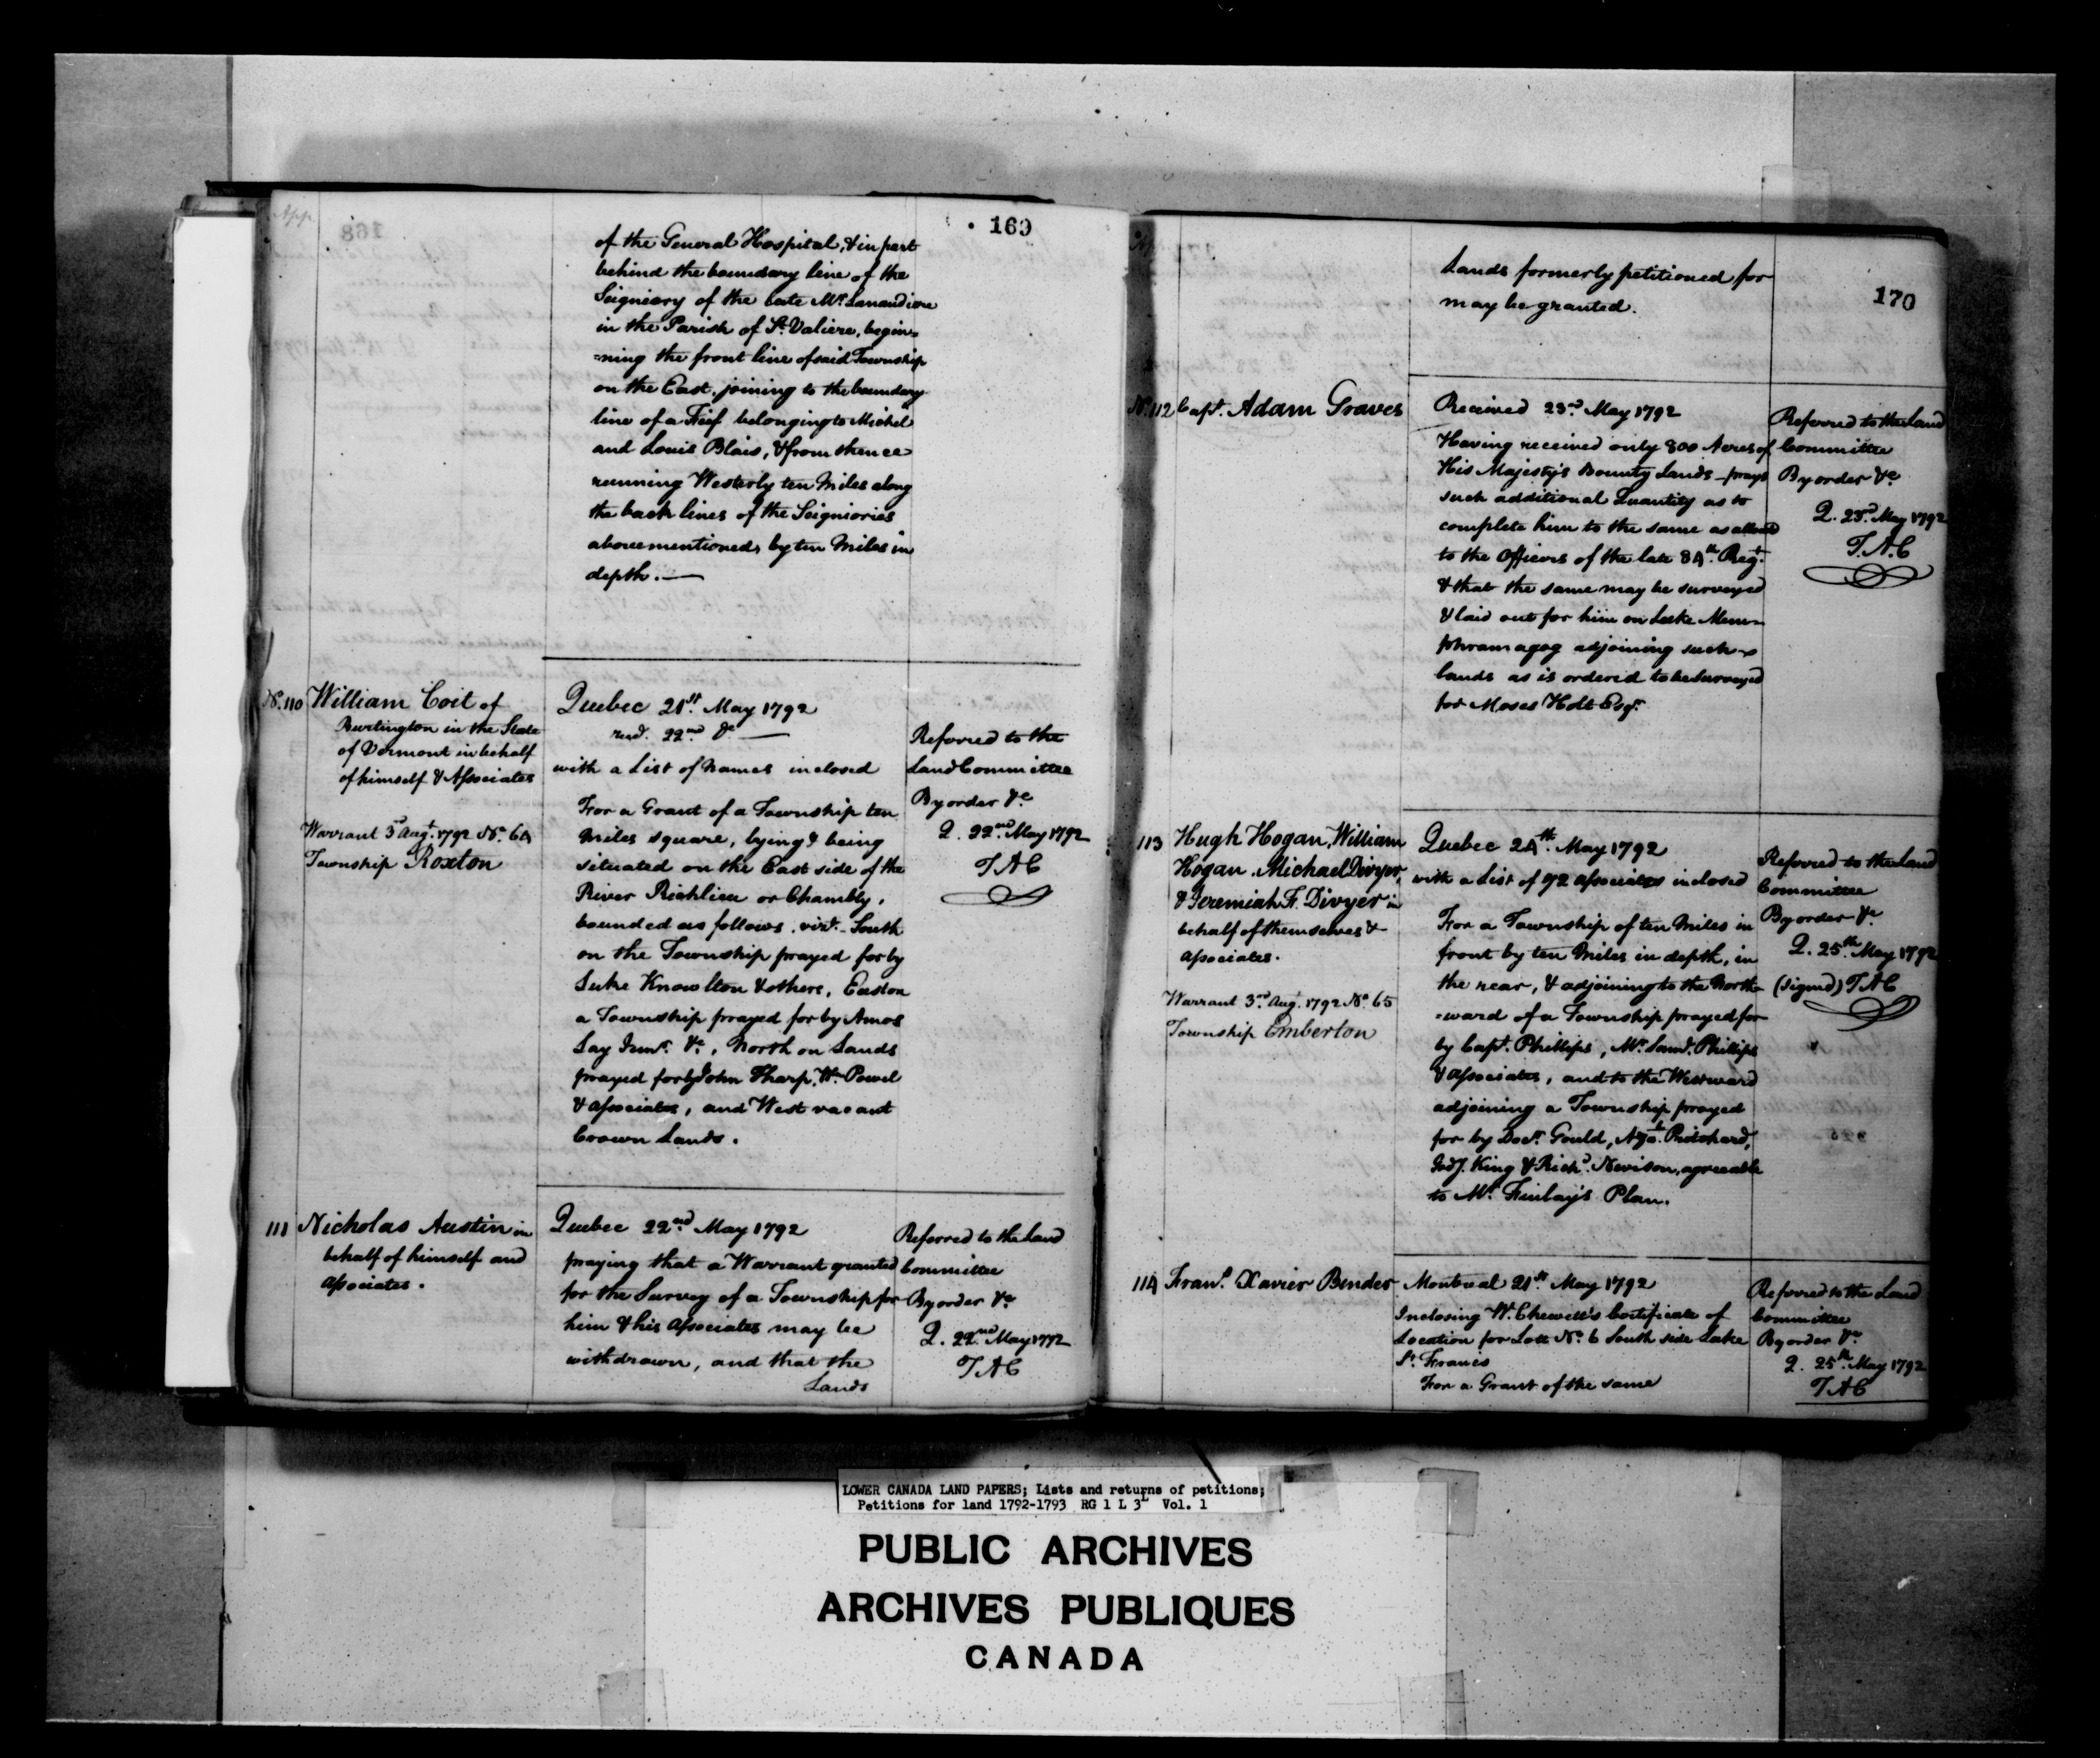 169
of the General Hospital, & in part
behind the boundary line of the
Seigniory of the late Mr. Lanaudiere
in the Parish of St. Valiere, begin=
=ning the front line of said Township
on the East, joining to the boundary
line of a Fief belonging to Michel
and Louis Blais, & from thence
running Westerly ten Miles along
the back lines of the Seigniories
abovementioned, by ten Miles in
depth. —
No. 110 William Coit of
Burlington in the State
of Vermont in behalf
of himself & Associates
Warrant 3rd Augt. 1792 No. 64
Township Roxton
Quebec 21st. May 1792
read. 22nd do. —
with a List of Names inclosed
For a Grant of a Township ten
Miles square, lying & being
situated on the East side of the
River Richlieu or Chambly,
bounded as follows, vizt. South
on the Township prayed for by
Luke Knowlton & others, East on
a Township prayed for by Amos
Lay Junr. &c., North on Lands
prayed for by John Tharp, Wm. Powel
& Associates, and West vacant
Crown Lands.
Referred to the
Land Committee
By order &c
Q. 22nd. May 1792
T A C
111 Nicholas Austin in
behalf of himself and
Associates.
Quebec 22nd May 1792
praying that a Warrant granted
for the Survey of a Township for
him & his Associates may be
withdrawn, and that the
Lands
Referred to the Land
Committee
By order &c
Q. 22nd. May 1792
T A C
170
Lands formerly petitioned for
may be granted.
No. 112 Capt. Adam Graves
Received 23rd May 1792
Having received only 800 Acres of
His Majesty's Bounty Lands — prays
such additional Quantity as to
complete him to the same as allowed
to the Officers of the late 84th. Regt.
& that the same may be surveyed
& laid out for him on Lake Mem=
phramagog adjoining such
lands as is ordered to be Surveyed
for Moses Holt Esqr.
Referred to the Land
Committee
By order &c
Q. 23rd. May 1792
T. A. C
113 Hugh Hogan, William
Hogan, Michael Divyer,
& Jeremiah F. Divyer in
behalf of themselves &
Associates.
Warrant 3rd Augt. 1792 No. 65
Township Emberton
Quebec 24th. May 1792
with a List of 92 Associates inclosed
For a Township of ten Miles in
front by ten Miles in depth, in
the rear, & adjoining to the North=
=ward of a Township prayed for
by Capt. Phillips, Mr. Saml. Phillips
& Associates, and to the Westward
adjoining a Township prayed
for by Docr. Gould, Azh. Pritchard,
Godf. King & Richd. Nevison, agreeable
to Mr. Finlay's Plan.
Referred to the Land
Committee
By order &c
Q. 25th. May 1792
(signed) T A C
114 Frans. Xavier Bender
Montreal 21st May 1792
Inclosing W. Chewett's Certificate of
Location for Lott No. 6 South side Lake
St. Francis
For a Grant of the same
Referred to the Land
Committee
By order &c
Q. 25th. May 1792
T A C
LOWER CANADA LAND PAPERS; Lists and returns of petitions;
Petitions for land 1792-1793 RG 1 L 3L Vol. 1
PUBLIC ARCHIVES
ARCHIVES PUBLIQUES
CANADA